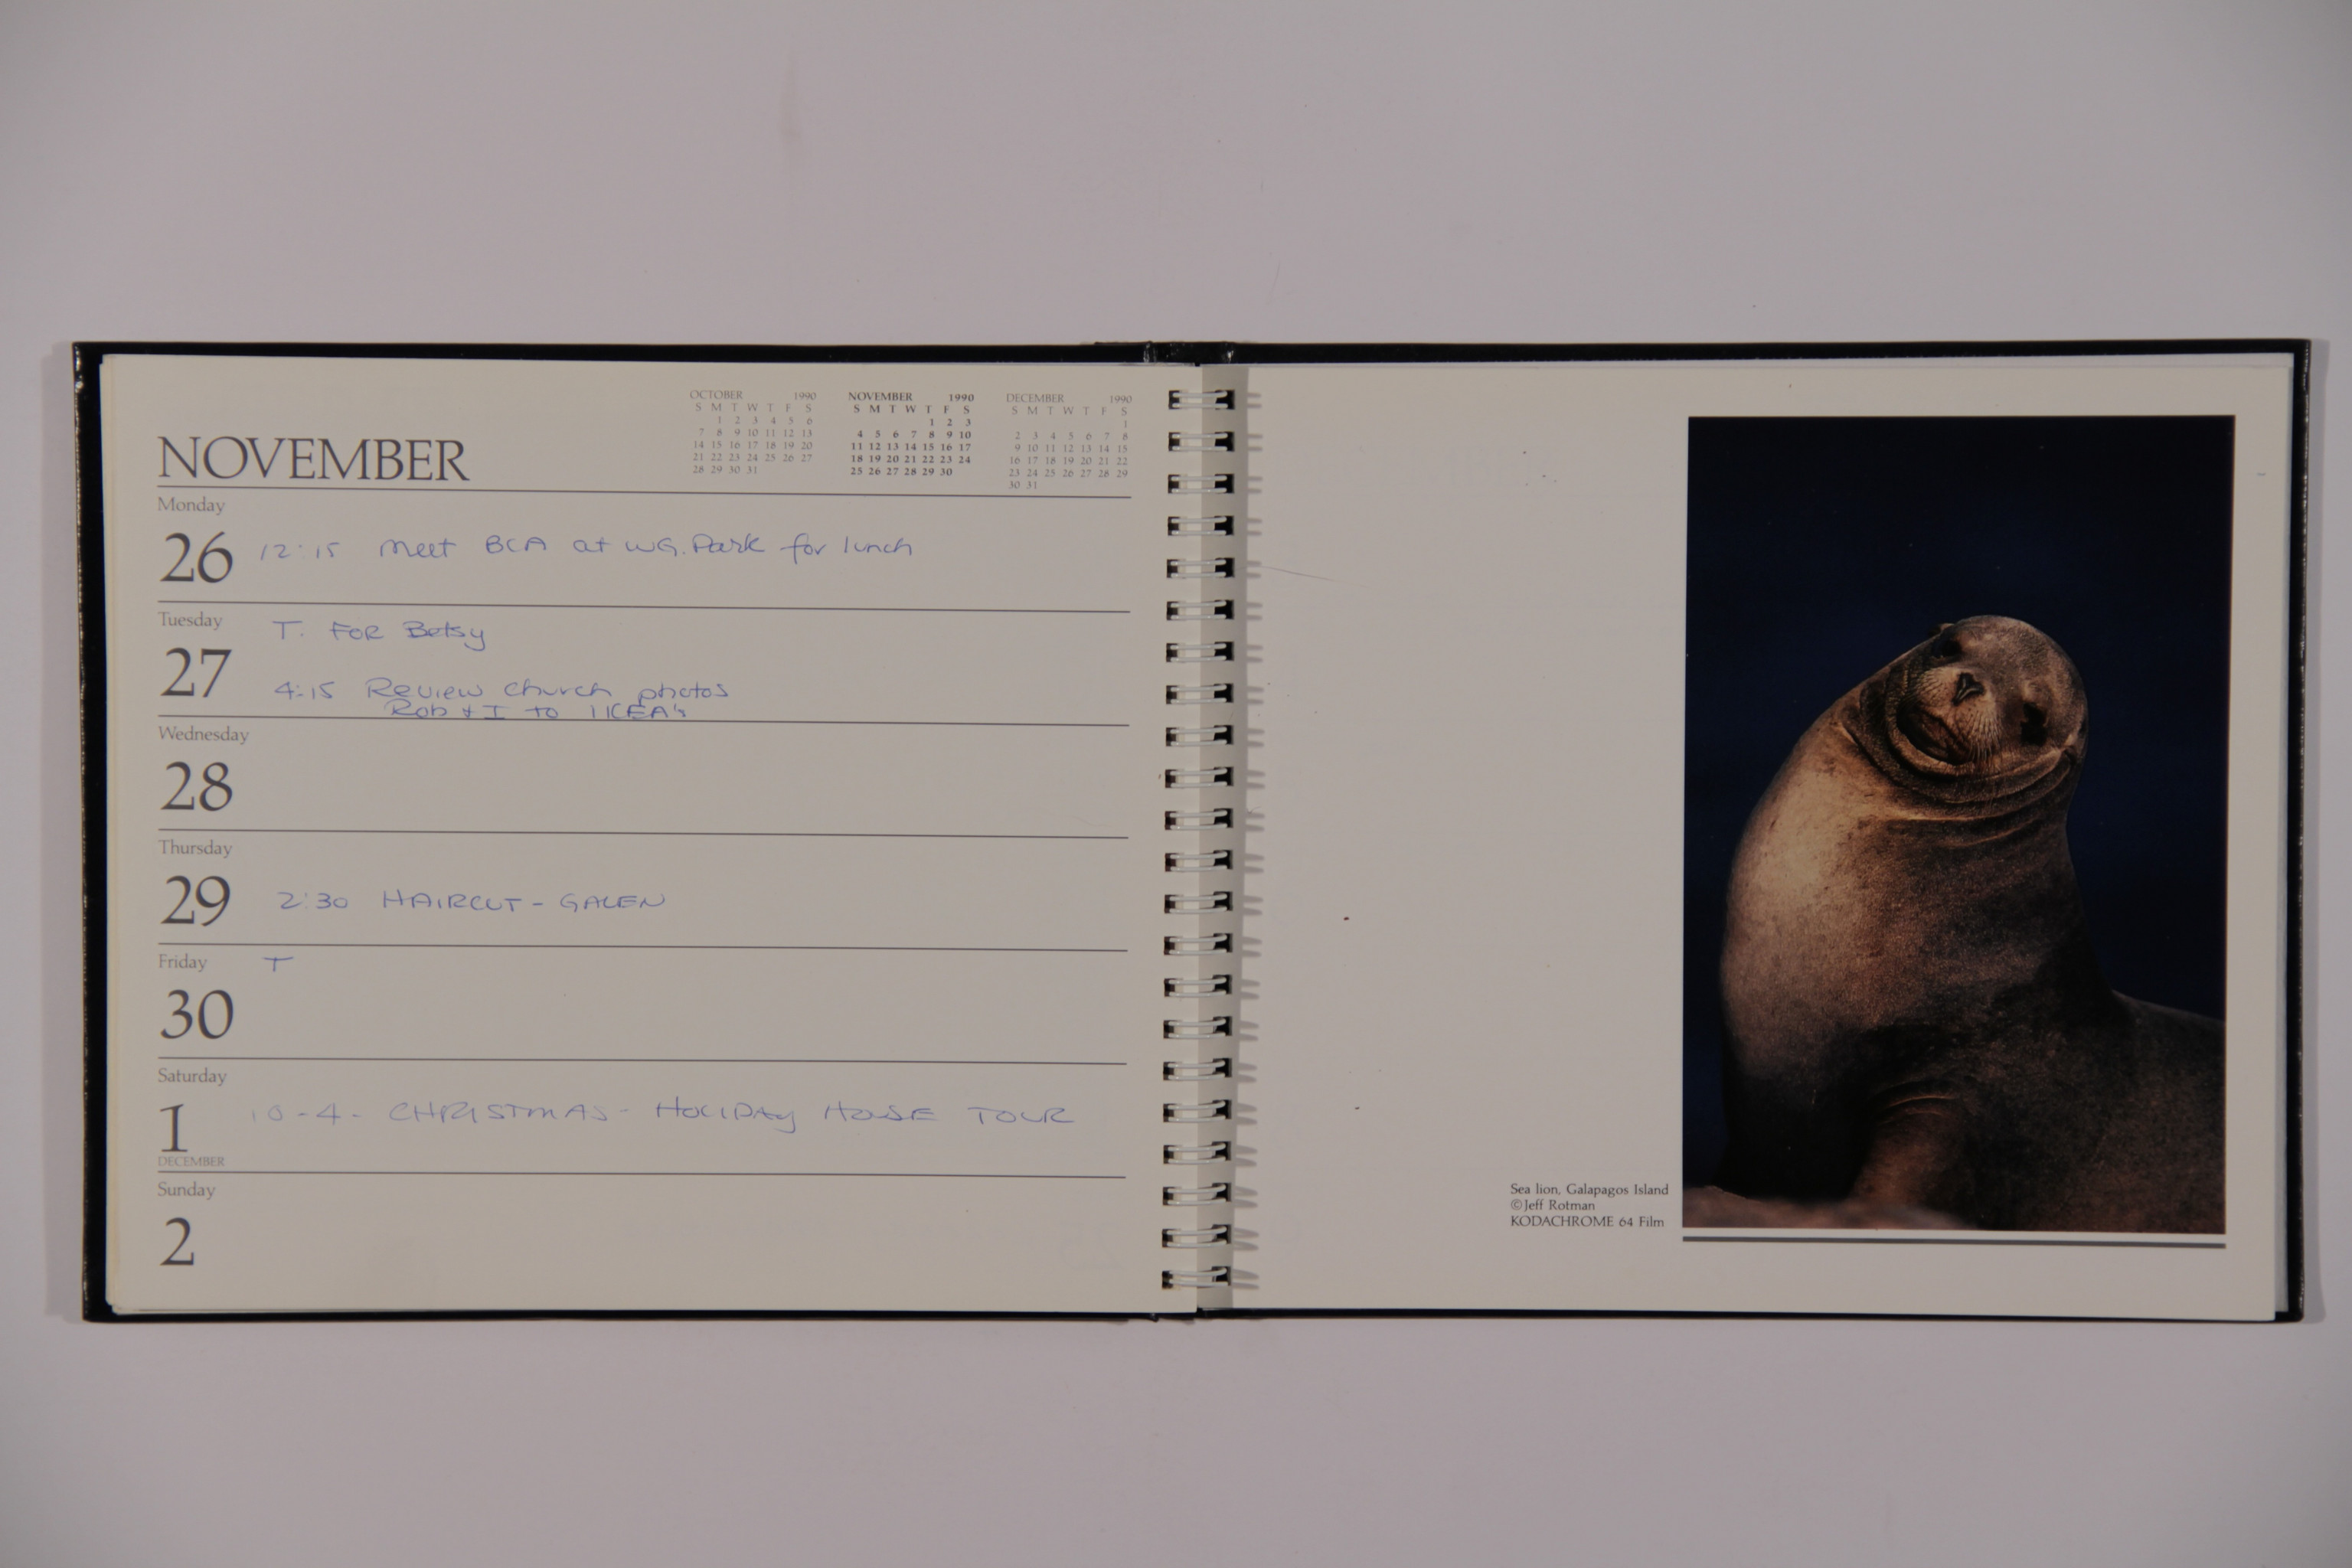 OCTOBER 1990
S M T W T F S
1 2 3 4 5 6
7 8 9 10 11 12 13
14 15 16 17 18 19 20
21 22 23 24 25 26 27
28 29 30 31
NOVEMBER 1990
S M T W T F S
1 2 3
4 5 6 7 8 9 10
11 12 13 14 15 16 17
18 19 20 21 22 23 24
25 26 27 28 29 30
DECEMBER 1990
S M T W T F S
1
2 3 4 5 6 7 8
9 10 11 12 13 14 15
16 17 18 19 20 21 22
23 24 25 26 27 28 29
30 31
NOVEMBER
Monday
26 12:15 meet BCA at WG. Park for lunch
Tuesday
T. FOR Betsy
27
4:15 Review church photos
Rob & I to IKEA's
Wednesday
28
Thursday
29 2:30 HAIRCUT - GALEN
Friday T
30
Saturday
1 10-4 - CHRISTMAS - HOLIDAY HOUSE TOUR
DECEMBER
Sunday
2
Sea lion, Galapagos Island
©Jeff Rotman
KODACHROME 64 Film